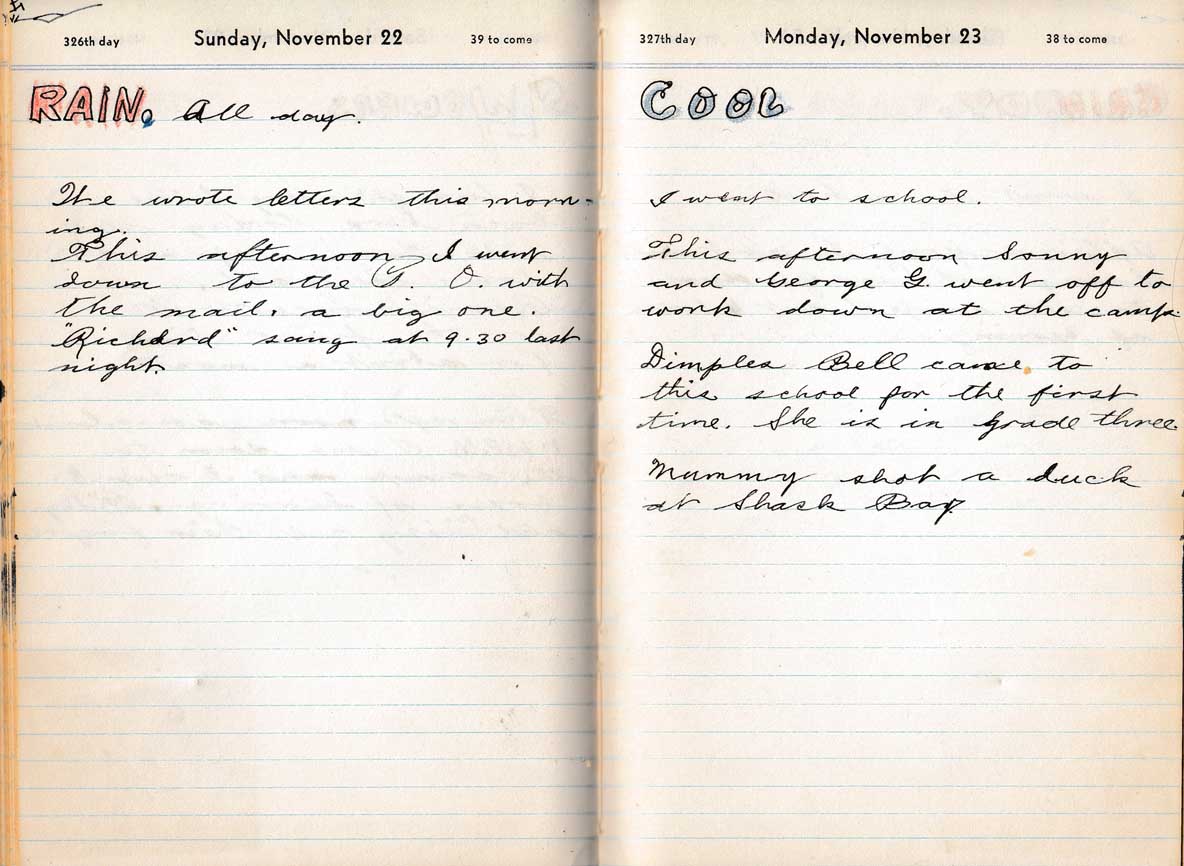 326th day Sunday, November 22 39 to come
RAIN. All day.
We wrote letters this morn-
ing.
This afternoon I went
down to the P. O. with
the mail, a big one.
"Richard" sang at 9.30 last
night.
327th day Monday, November 23 38 to come
COOL
I went to school.
This afternoon Sonny
and George G. went off to
work down at the camp.
Dimples Bell came to
this school for the first
time. She is in grade three.
Mummy shot a duck
at Shack Bay